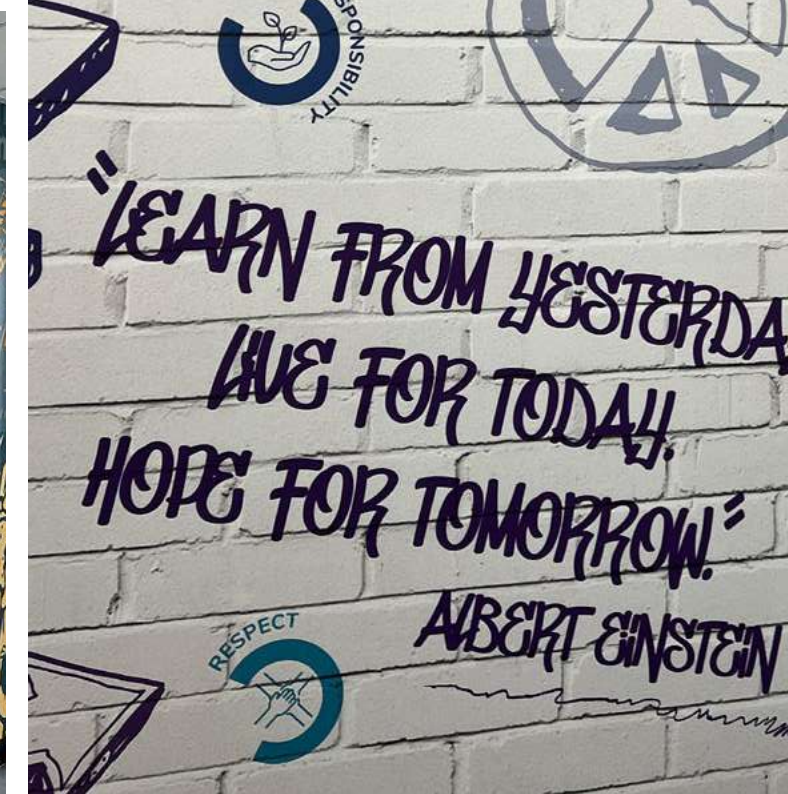 SPONSIBILITY
"LEARN FROM YESTERDA
LIVE FOR TODAY.
HOPE FOR TOMORROW."
ALBERT EINSTEIN
RESPECT